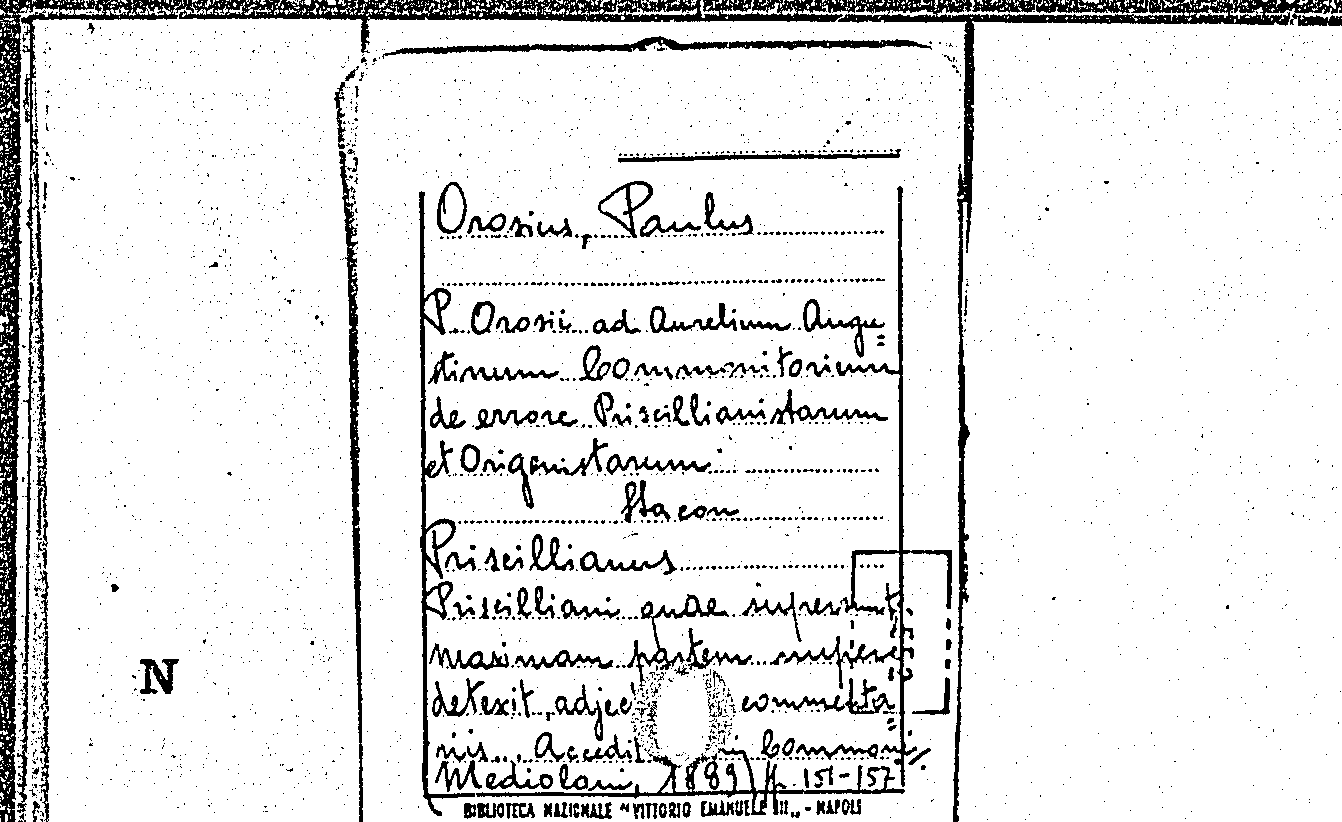 Orosius, Paulus
P. Orosii ad Aurelium Augu=
stinum Commonitorium
de errore Priscillianistarum
et Origenistarum.
Sta con
Priscillianus
Priscilliani quae supersunt,
maximam partem nuper
detexit, adjec commenta=
riis.. Accedit Commoni/.
Mediolani, 1889) p. 151-157
BIBLIOTECA NAZIONALE "VITTORIO EMANUELE III„ - NAPOLI
N